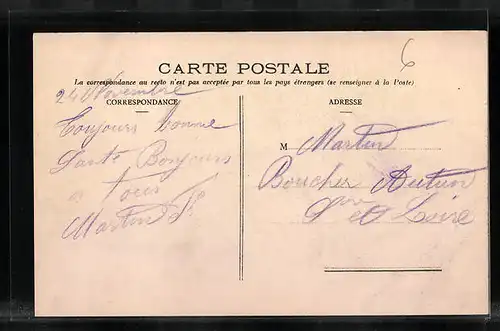 6
CARTE POSTALE
La correspondance au recto n'est pas acceptée par tous les pays étrangers (se renseigner à la Poste)
24 Novembre
CORRESPONDANCE
Toujours bonne
Santé Bonjours
a tous
Martin
ADRESSE
M Martin
Boucher Autun
Sne et Loire